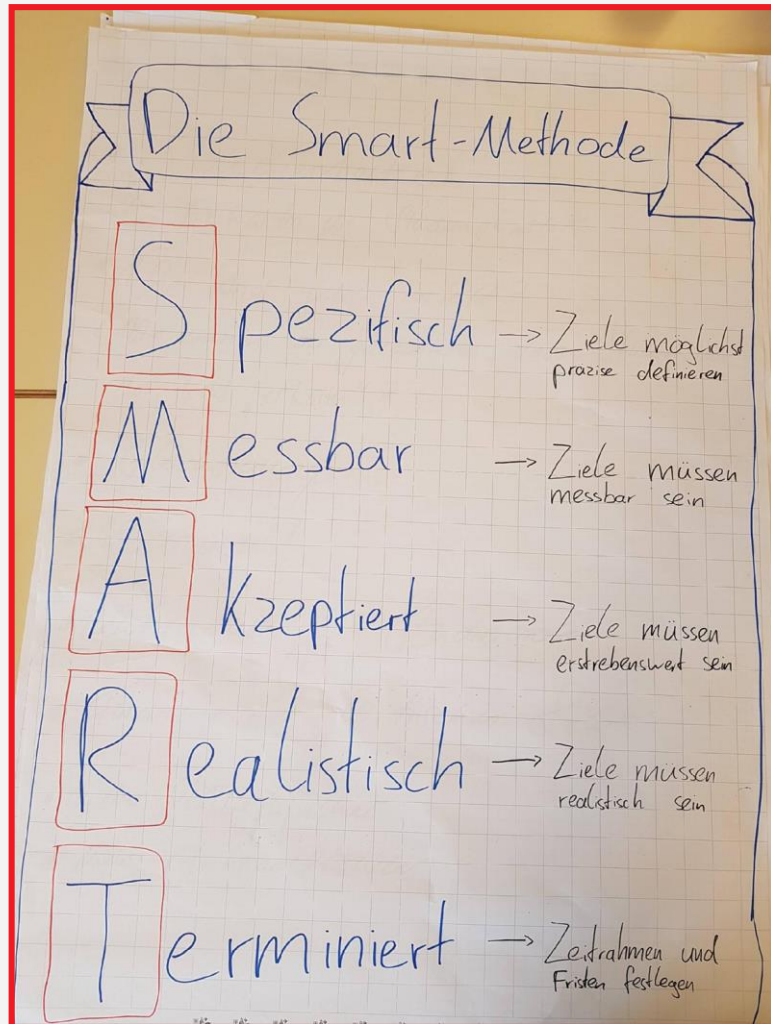 Die Smart-Methode
Spezifisch → Ziele möglichst
prazise definieren
Messbar → Ziele müssen
messbar sein
Akzeptiert → Ziele müssen
erstrebenswert sein
Realistisch → Ziele müssen
realistisch sein
Terminiert → Zeitrahmen und
Fristen festlegen